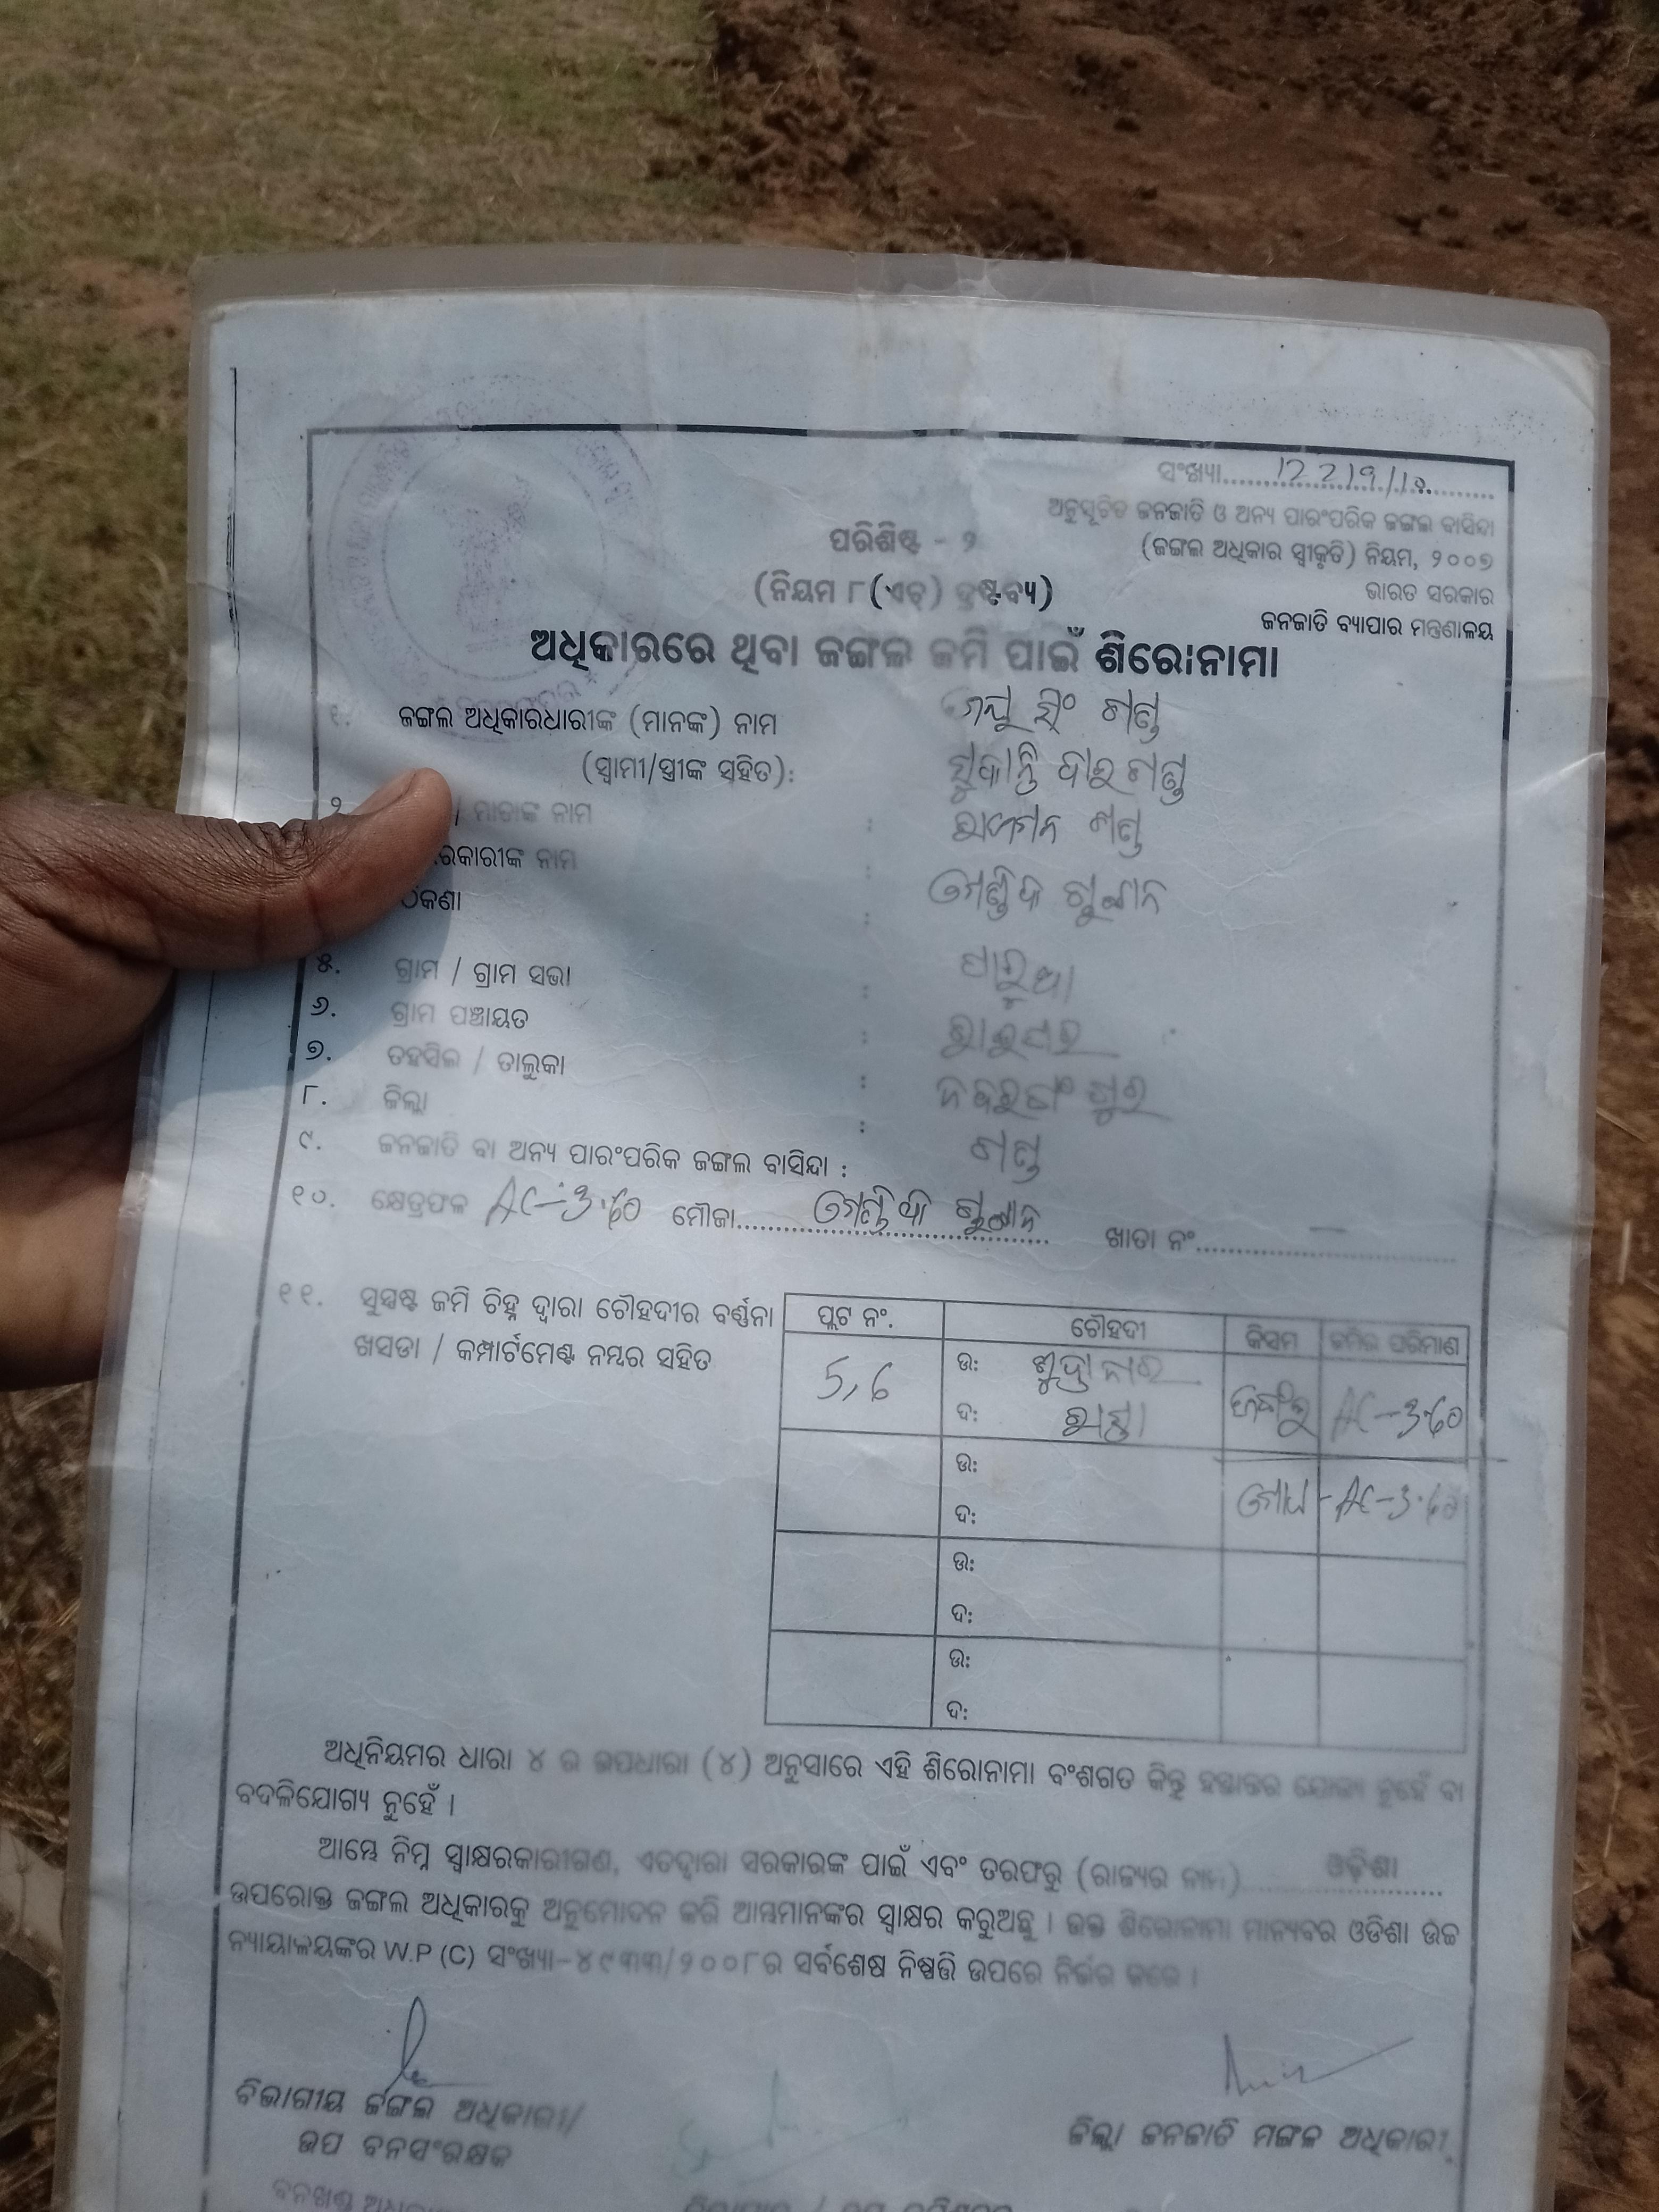 ସଂଖ୍ୟା............12219/10............
ଅନୁସୂଚିତ ଜନଜାତି ଓ ଅନ୍ୟ ପାରଂପରିକ ଜଙ୍ଗଲ ବାସିନ୍ଦା
ପରିଶିଷ୍ଟ - ୨
(ଜଙ୍ଗଲ ଅଧିକାର ସ୍ୱୀକୃତି) ନିୟମ, ୨୦୦୭
(ନିୟମ ୮(ଏଚ୍) ଦ୍ରଷ୍ଟବ୍ୟ)
ଭାରତ ସରକାର
ଜନଜାତି ବ୍ୟାପାର ମନ୍ତ୍ରଣାଳୟ
ଅଧିକାରରେ ଥିବା ଜଙ୍ଗଲ ଜମି ପାଇଁ ଶିରୋନାମା
୧. ଜଙ୍ଗଲ ଅଧିକାରଧାରୀଙ୍କ (ମାନଙ୍କ) ନାମ ସିଂ ଗଣ୍ଡ
(ସ୍ୱାମୀ/ସ୍ତ୍ରୀଙ୍କ ସହିତ): ସୁକାନ୍ତି ବାଇ ଗଣ୍ଡ
୨. ମାତାଙ୍କ ନାମ : ଗଣ୍ଡ
ରକାରୀଙ୍କ ନାମ :
ଠିକଣା :
୫. ଗ୍ରାମ / ଗ୍ରାମ ସଭା :
୬. ଗ୍ରାମ ପଞ୍ଚାୟତ
୭. ତହସିଲ / ତାଲୁକା : ରାଇଘର
୮. ଜିଲ୍ଲା : ନବରଙ୍ଗପୁର
୯. ଜନଜାତି ବା ଅନ୍ୟ ପାରଂପରିକ ଜଙ୍ଗଲ ବାସିନ୍ଦା : ଗଣ୍ଡ
୧୦. କ୍ଷେତ୍ରଫଳ AC-3.60 ମୌଜା............ ଖାତା ନଂ............
୧୧. ସୁସ୍ପଷ୍ଟ ଜମି ଚିହ୍ନ ଦ୍ୱାରା ଚୌହଦୀର ବର୍ଣ୍ଣନା
ଖସଡା / କମ୍ପାର୍ଟମେଣ୍ଟ ନମ୍ବର ସହିତ
ପ୍ଲଟ ନଂ. ଚୌହଦୀ କିସମ ଜମିର ପରିମାଣ
5,6 ଉ: AC-3.60
ଦ: ରାସ୍ତା
ଉ: ମୋଟ - AC-3.60
ଦ:
ଉ:
ଦ:
ଉ:
ଦ:
ଅଧିନିୟମର ଧାରା ୪ ର ଉପଧାରା (୪) ଅନୁସାରେ ଏହି ଶିରୋନାମା ବଂଶଗତ କିନ୍ତୁ ହସ୍ତାନ୍ତର ଯୋଗ୍ୟ ନୁହେଁ ବା
ବଦଳିଯୋଗ୍ୟ ନୁହେଁ ।
ଆମ୍ଭେ ନିମ୍ନ ସ୍ୱାକ୍ଷରକାରୀଗଣ, ଏତଦ୍ୱାରା ସରକାରଙ୍କ ପାଇଁ ଏବଂ ତରଫରୁ (ରାଜ୍ୟର ନାମ)............ଓଡ଼ିଶା............
ଉପରୋକ୍ତ ଜଙ୍ଗଲ ଅଧିକାରକୁ ଅନୁମୋଦନ କରି ଆମ୍ଭମାନଙ୍କର ସ୍ୱାକ୍ଷର କରୁଅଛୁ । ଉକ୍ତ ଶିରୋନାମା ମାନ୍ୟବର ଓଡିଶା ଉଚ୍ଚ
ନ୍ୟାୟାଳୟଙ୍କର W.P (C) ସଂଖ୍ୟା-୪୯୩୩/୨୦୦୮ର ସର୍ବଶେଷ ନିଷ୍ପତ୍ତି ଉପରେ ନିର୍ଭର କରେ ।
ବିଭାଗୀୟ ଜଙ୍ଗଲ ଅଧିକାରୀ/
ଉପ ବନସଂରକ୍ଷକ
ଜିଲ୍ଲା ଜନଜାତି ମଙ୍ଗଳ ଅଧିକାରୀ